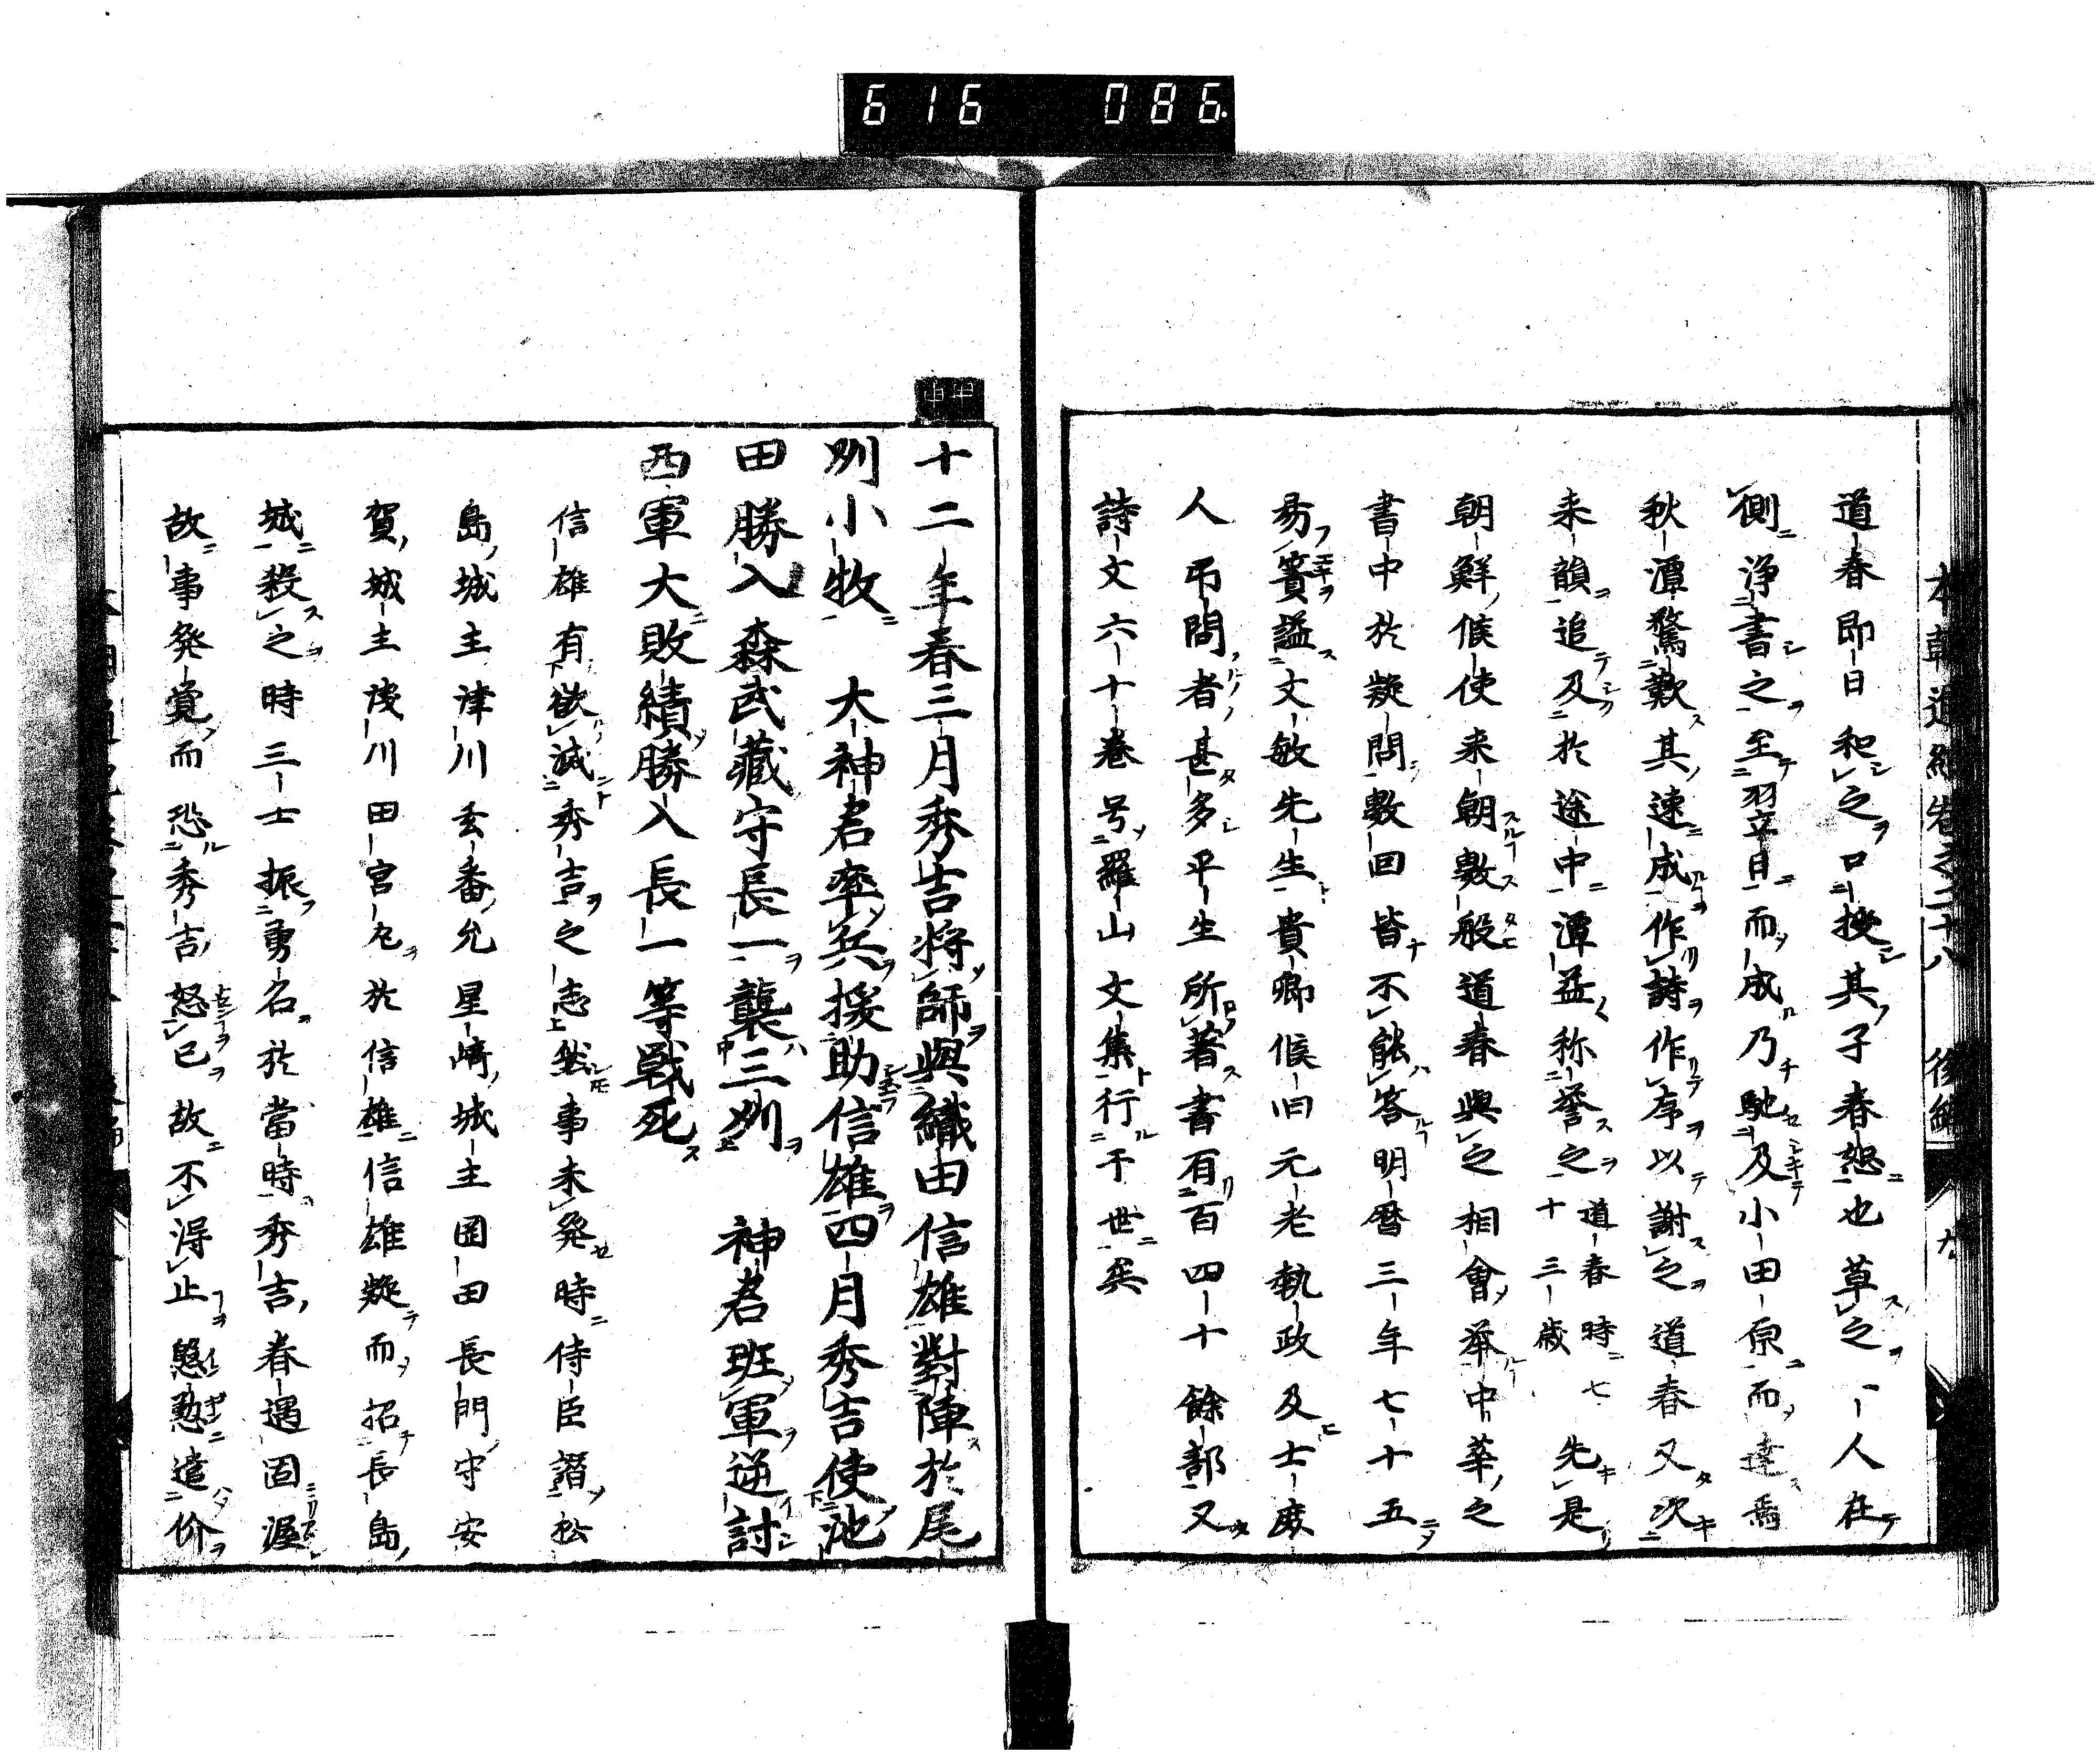 616 086
道春即日和之口授其子春恕也草之一人在
側浄書之至翌日而成乃馳及小田原而達焉
秋潭驚歎其速成作詩作序以謝之道春又次
来韻追及於途中潭益称誉之道春時七十三歳先是
朝鮮候使来朝數般道春與之相會举中華之
書中於疑問數回皆不能答明暦三年七十五
易簀謚文敏先生貴卿候旧元老執政及士庶
人弔問者甚多平生所著書有百四十餘部又
詩文六十巻号羅山文集行于世矣
甲申
十二年春三月秀吉将師與織田信雄對陣於尾
州小牧 大神君率兵援助信雄四月秀吉使池
田勝入森武藏守長一襲三州 神君班軍逆討
西軍大敗績勝入長一等戰死
信雄有欲滅秀吉之志然事未発時侍臣譖松
島城主津川玄番允星崎城主岡田長門守安
賀城主浅川田宮丸於信雄信雄疑而招長島
城殺之時三士振勇名於當時秀吉眷遇固渥
故事発覚而恐秀吉怒已故不得止慇懃遣价